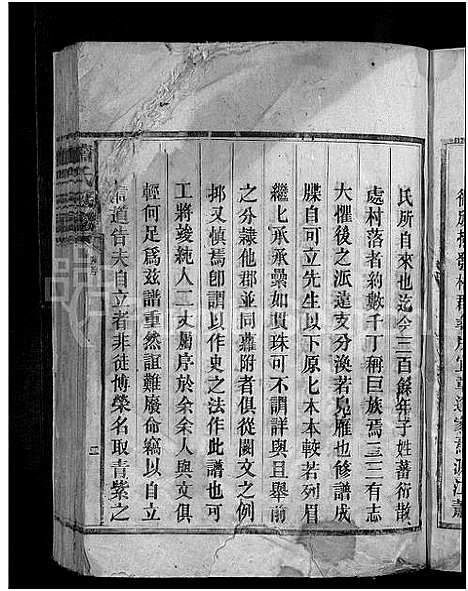 氏所自來也迄今三百餘年子姓蕃衍散
處村落者約數千丁稱巨族焉二三有志
大懼後之派遠支分渙若鳧雁也修譜成
牒自可立先生以下原比木本較若列眉
繼上承承纍如貫珠可不謂詳與且舉前
之分隸他郡並同蘿附者俱從闕文之例
抑又慎焉卽謂以作史之法作此譜也可
工將竣純人二丈屬序於余余人與文俱
輕何足爲兹譜重然誼難廢命竊以自立
道告夫自立者非徒博榮名取青紫之
二